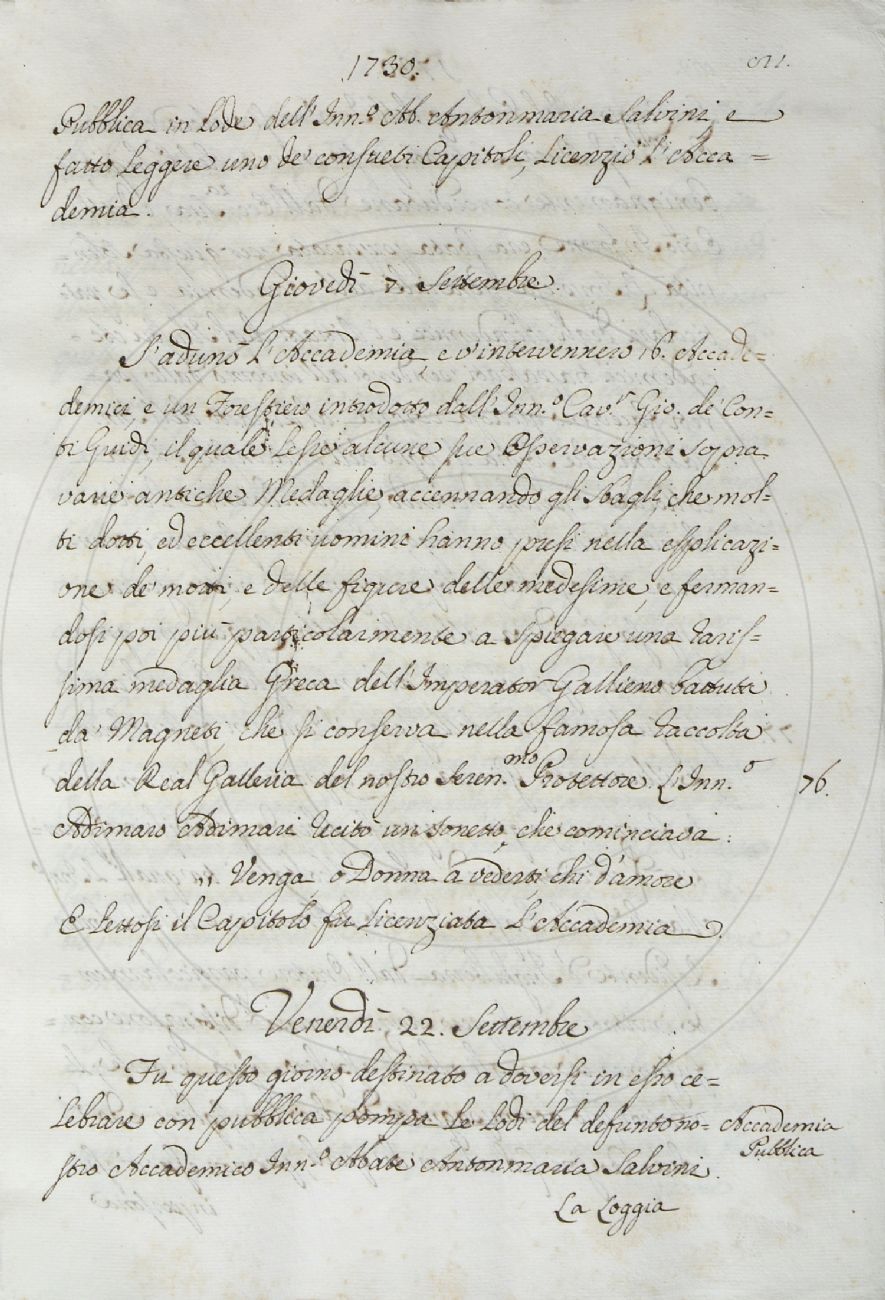 1730.
Pubblica in Lode dell'Inn.º Ab. Antonmaria Salvini, e
fatto Leggere uno de' consueti Capitoli, Licenziò L'Acca=
demia.
Giovedì 7. Settembre.
S'adunò L'Accademia, e v'intervennero 16. Accade=
demici, e un Forestiero introdotto dall'Inn.º Cav.r Gio. de' Con=
ti Guidi, il quale Lesse alcune sue Osservazioni sopra
varie antiche Medaglie, accennando gli sbagli, che mol=
ti dotti, ed eccellenti uomini hanno presi nella esplicazi=
one de' motti, e delle figure delle medesime, e ferman=
dosi poi più particolarmente a spiegare una raris=
sima medaglia Greca dell'Imperator Gallieno battuta
da' Magneti, che si conserva nella famosa raccolta
della Real Galleria del nostro Seren.mo Protettore. L'Inn.º 76.
Adimaro Adimari recitò un sonetto, che cominciava:
,, Venga, o Donna a vederti, chi d'amore
E Lettosi il Capitolo fu Licenziata L'Accademia.
Venerdì 22. Settembre
Fu questo giorno destinato a doversi in esso ce=
lebrare con pubblica pompa Le Lodi del defunto no= Accademia
stro Accademico Inn.º Abate Antonmaria Salvini. Pubblica
La Loggia